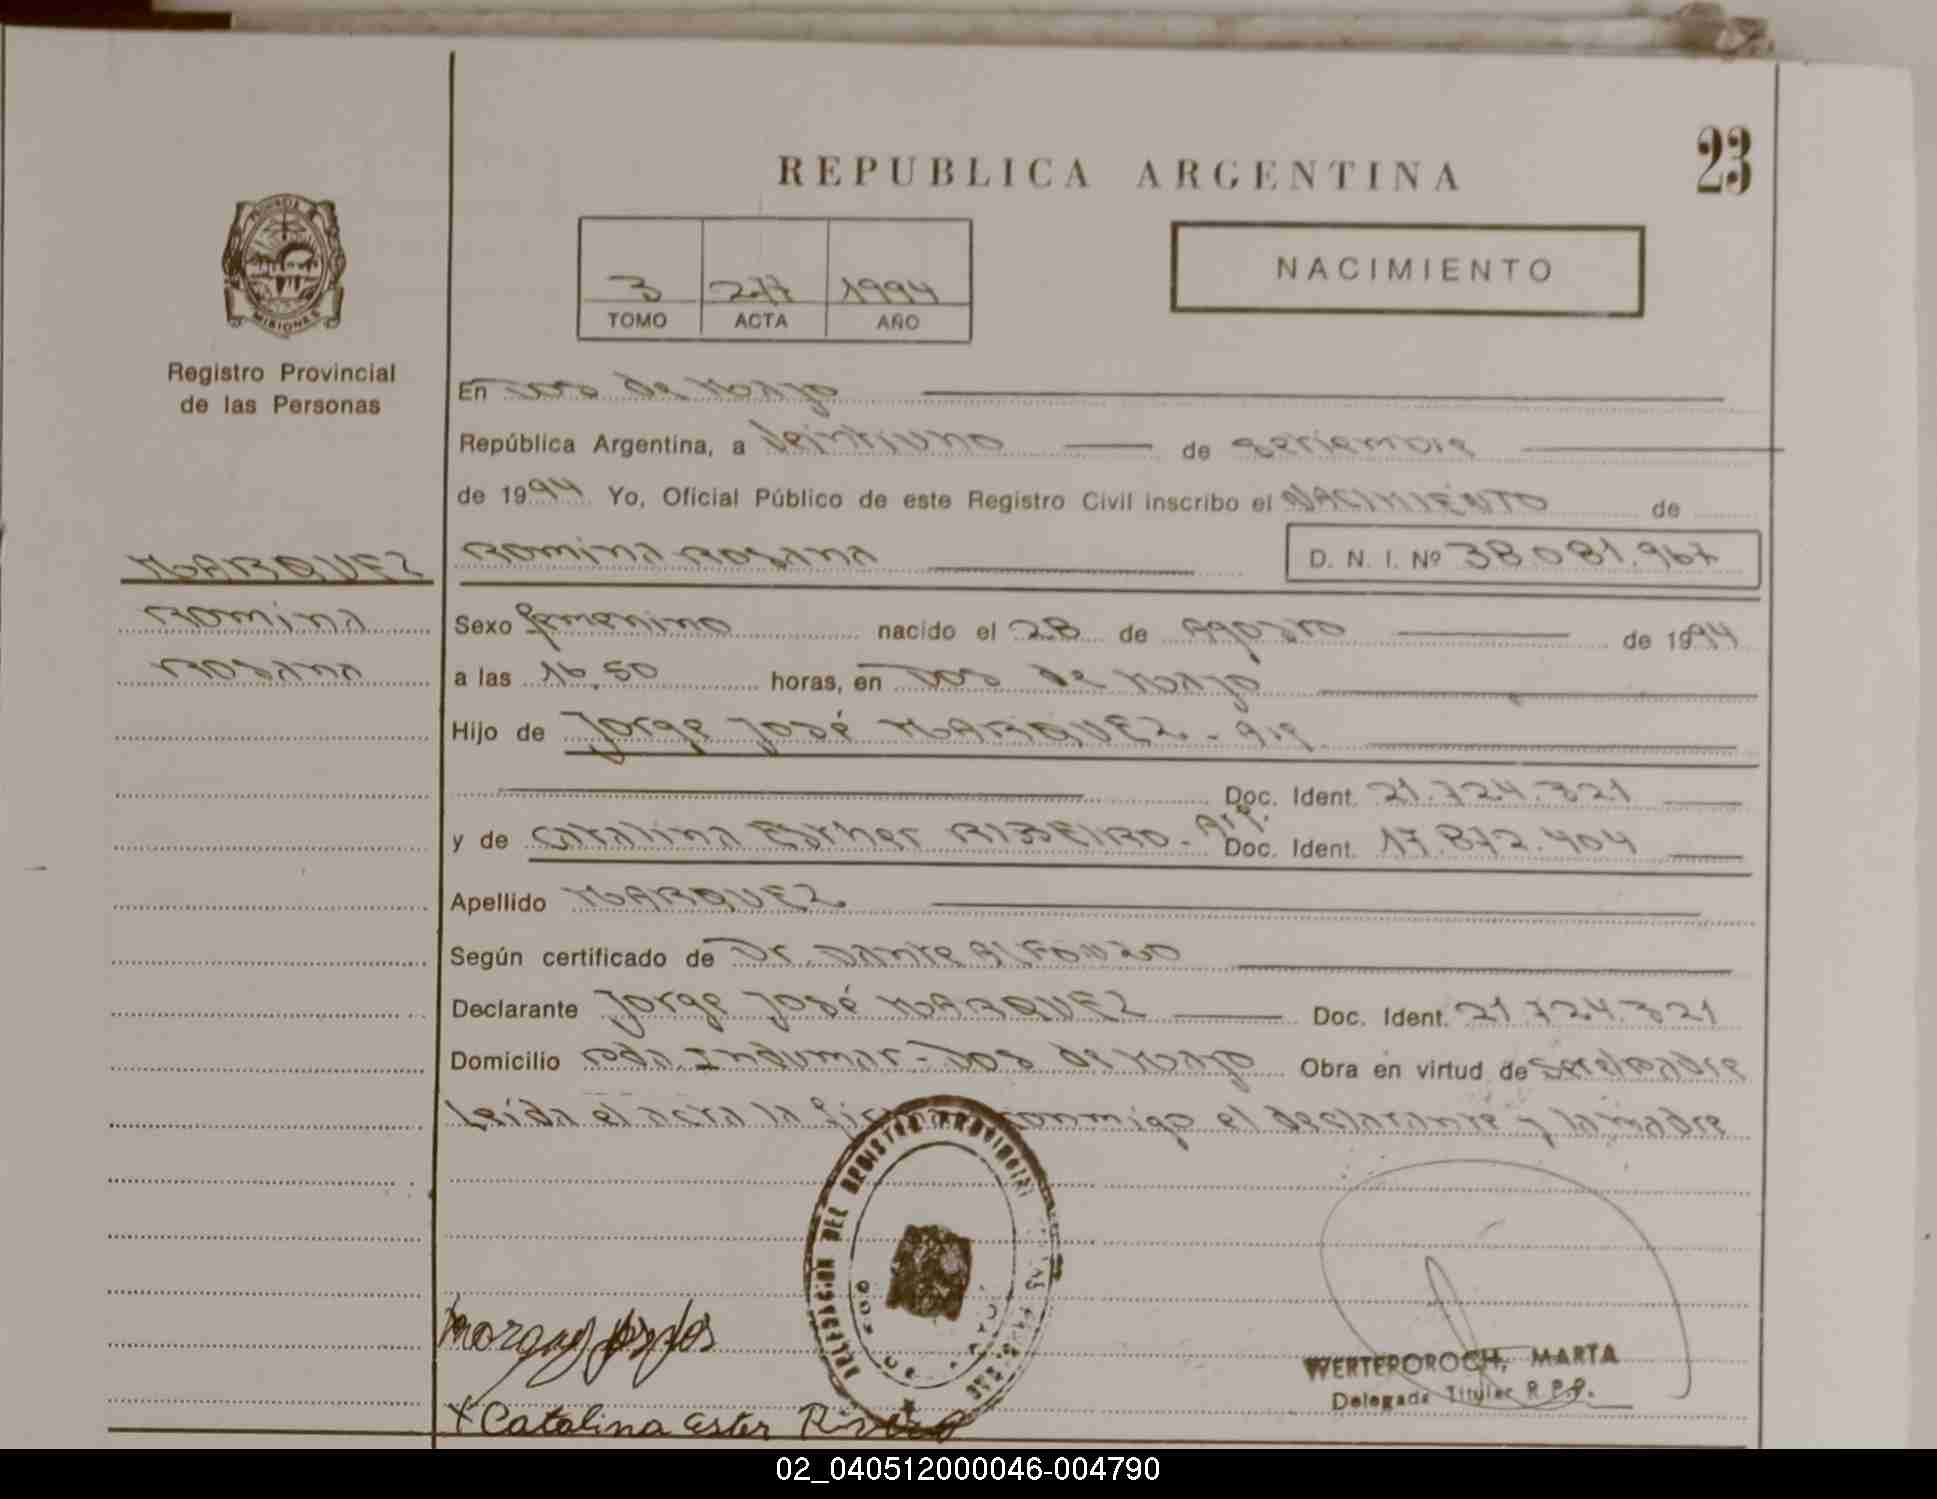 23
REPUBLICA ARGENTINA
NACIMIENTO
3 277 1994
TOMO ACTA AÑO
MISIONES
Registro Provincial
de las Personas
En Dos de Mayo
República Argentina, a Veintiuno de Setiembre
de 1994 Yo, Oficial Público de este Registro Civil inscribo el NACIMIENTO de
MARQUEZ Romina Rosana D. N. I. Nº 38.081.967
Romina
Rosana
Sexo femenino nacido el 28 de Agosto de 1994
a las 16,50 horas, en Dos de Mayo
Hijo de Jorge José MARQUEZ - arg
Doc. Ident. 21.724.321
y de Catalina Esther RIBEIRO - Arg. Doc. Ident. 17.872.404
Apellido MARQUEZ
Según certificado de Dr. Dante ALFONZO
Declarante Jorge José MARQUEZ Doc. Ident. 21.724.321
Domicilio Indumar - Dos de Mayo Obra en virtud de ser el padre
Leída el acta la conmigo el declarante y la madre
DELEGACION DEL REGISTRO PROVINCIAL DE LAS PERSONAS
WERTEPOROCH, MARTA
Delegada Titular R.P.P.
X Catalina Ester
02_040512000046-004790